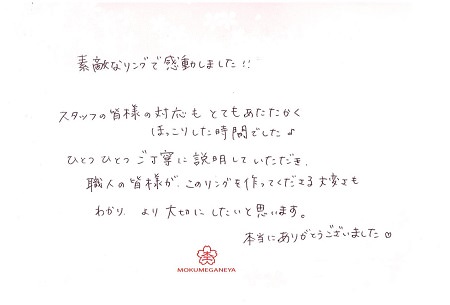 素敵なリングで感動しました!!
スタッフの皆様の対応もとてもあたたかく
ほっこりした時間でした♪
ひとつひとつご丁寧に説明していただき、
職人の皆様が、このリングを作ってくださる大変さも
わかり、より大切にしたいと思います。
本当にありがとうございました♡
MOKUMEGANEYA